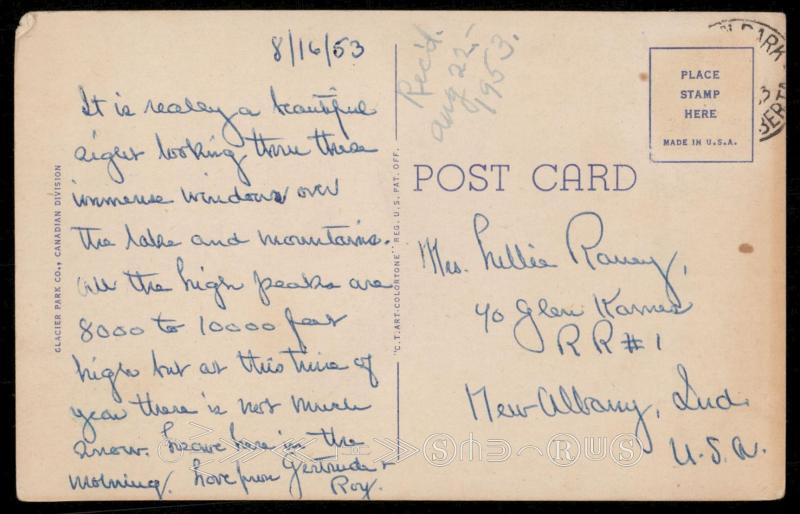 8/16/53
It is realey a beautiful
sight looking thru these
immense windows over
the lake and mountains.
All the high peaks are
8000 to 10000 feet
high but at this time of
year there is not much
snow. Leave here in the
morning. Love from Gertrude &
Roy.
GLACIER PARK CO., CANADIAN DIVISION
"C.T. ART-COLORTONE" REG. U.S. PAT. OFF.
Rec'd.
Aug 22,-
1953.
PARK
BERTA
PLACE
STAMP
HERE
MADE IN U.S.A.
POST CARD
Mrs. Lillie Raney,
℅ Glen Karnes
RR#1
New Albany, Ind.
U.S.A.